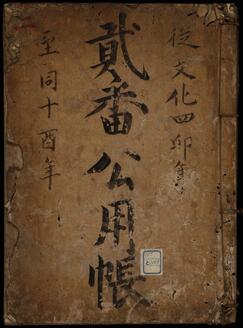 従文化四卯年
貳番公用帳
至同十酉年